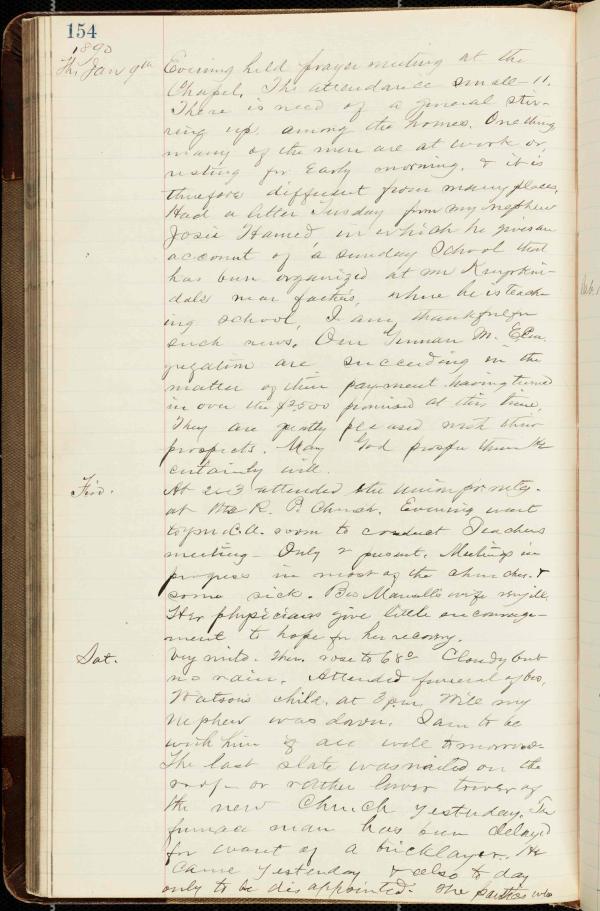 154
1890
Th. Jan 9th Evening held prayer meeting at the
Chapel. The attendance small - 11.
There is need of a general stir-
ring up among the homes. One thing
many of the men are at work or
resting for early morning. & it is
therefore different from many places.
Had a letter Tuesday from my nephew
Josie Hamed, in which he gives an
account of a Sunday School that
has been organized at
dale near father's, where he is teach-
ing school. I am thankful for
such news. Our German M. E. Con
gregation are succeeding in the
matter of their payment having turned
in over the $2500 promised at this time.
They are greatly pleased with their
prospects. May God prosper them He
certainly will.
Frid. At 2 & 3 attended the union pr. mtg.
at the R. P. Church. Evening went
to Y.M.C.A. room to conduct Teachers
meeting - Only 2 present. Meetings in
progress in most of the churches. &
some sick. Bro wife very ill.
Her physicians give little encourage-
ment to hope for her recovery.
Sat. Very mild. Ther. rose to 68° Cloudy but
no rain. Attended funeral of Bro.
Watson's child. at 3 p.m. Will my
nephew was down. I am to be
with him if all well tomorrow.
The last slate was nailed on the
roof - or rather lower tower of
the new Church yesterday. The
furnace man has been delayed
for want of a bricklayer. He
came yesterday & also to day
only to be disappointed. The parties who